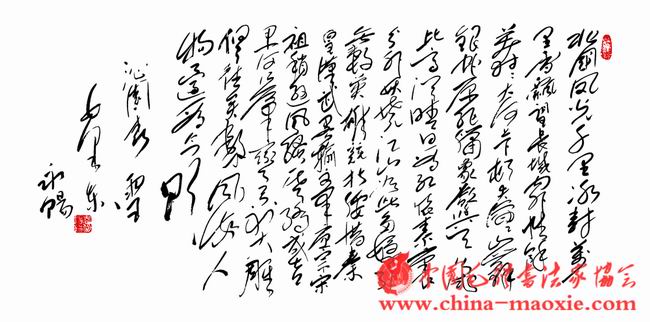 北国风光千里冰封万
里雪飘望长城内外惟馀
莽莽大河上下顿失滔滔山舞
银蛇原驰蜡象欲与天公试
比高须晴日看红装素裹
分外妖娆江山如此多娇引
无数英雄竞折腰惜秦
皇汉武略输文采唐宗宋
祖稍逊风骚一代天骄成吉
思汗只识弯弓射大雕
俱往矣数风流人
物还看今朝
沁园春 雪
毛泽东
中国毛体书法家协会
www.china-maoxie.com